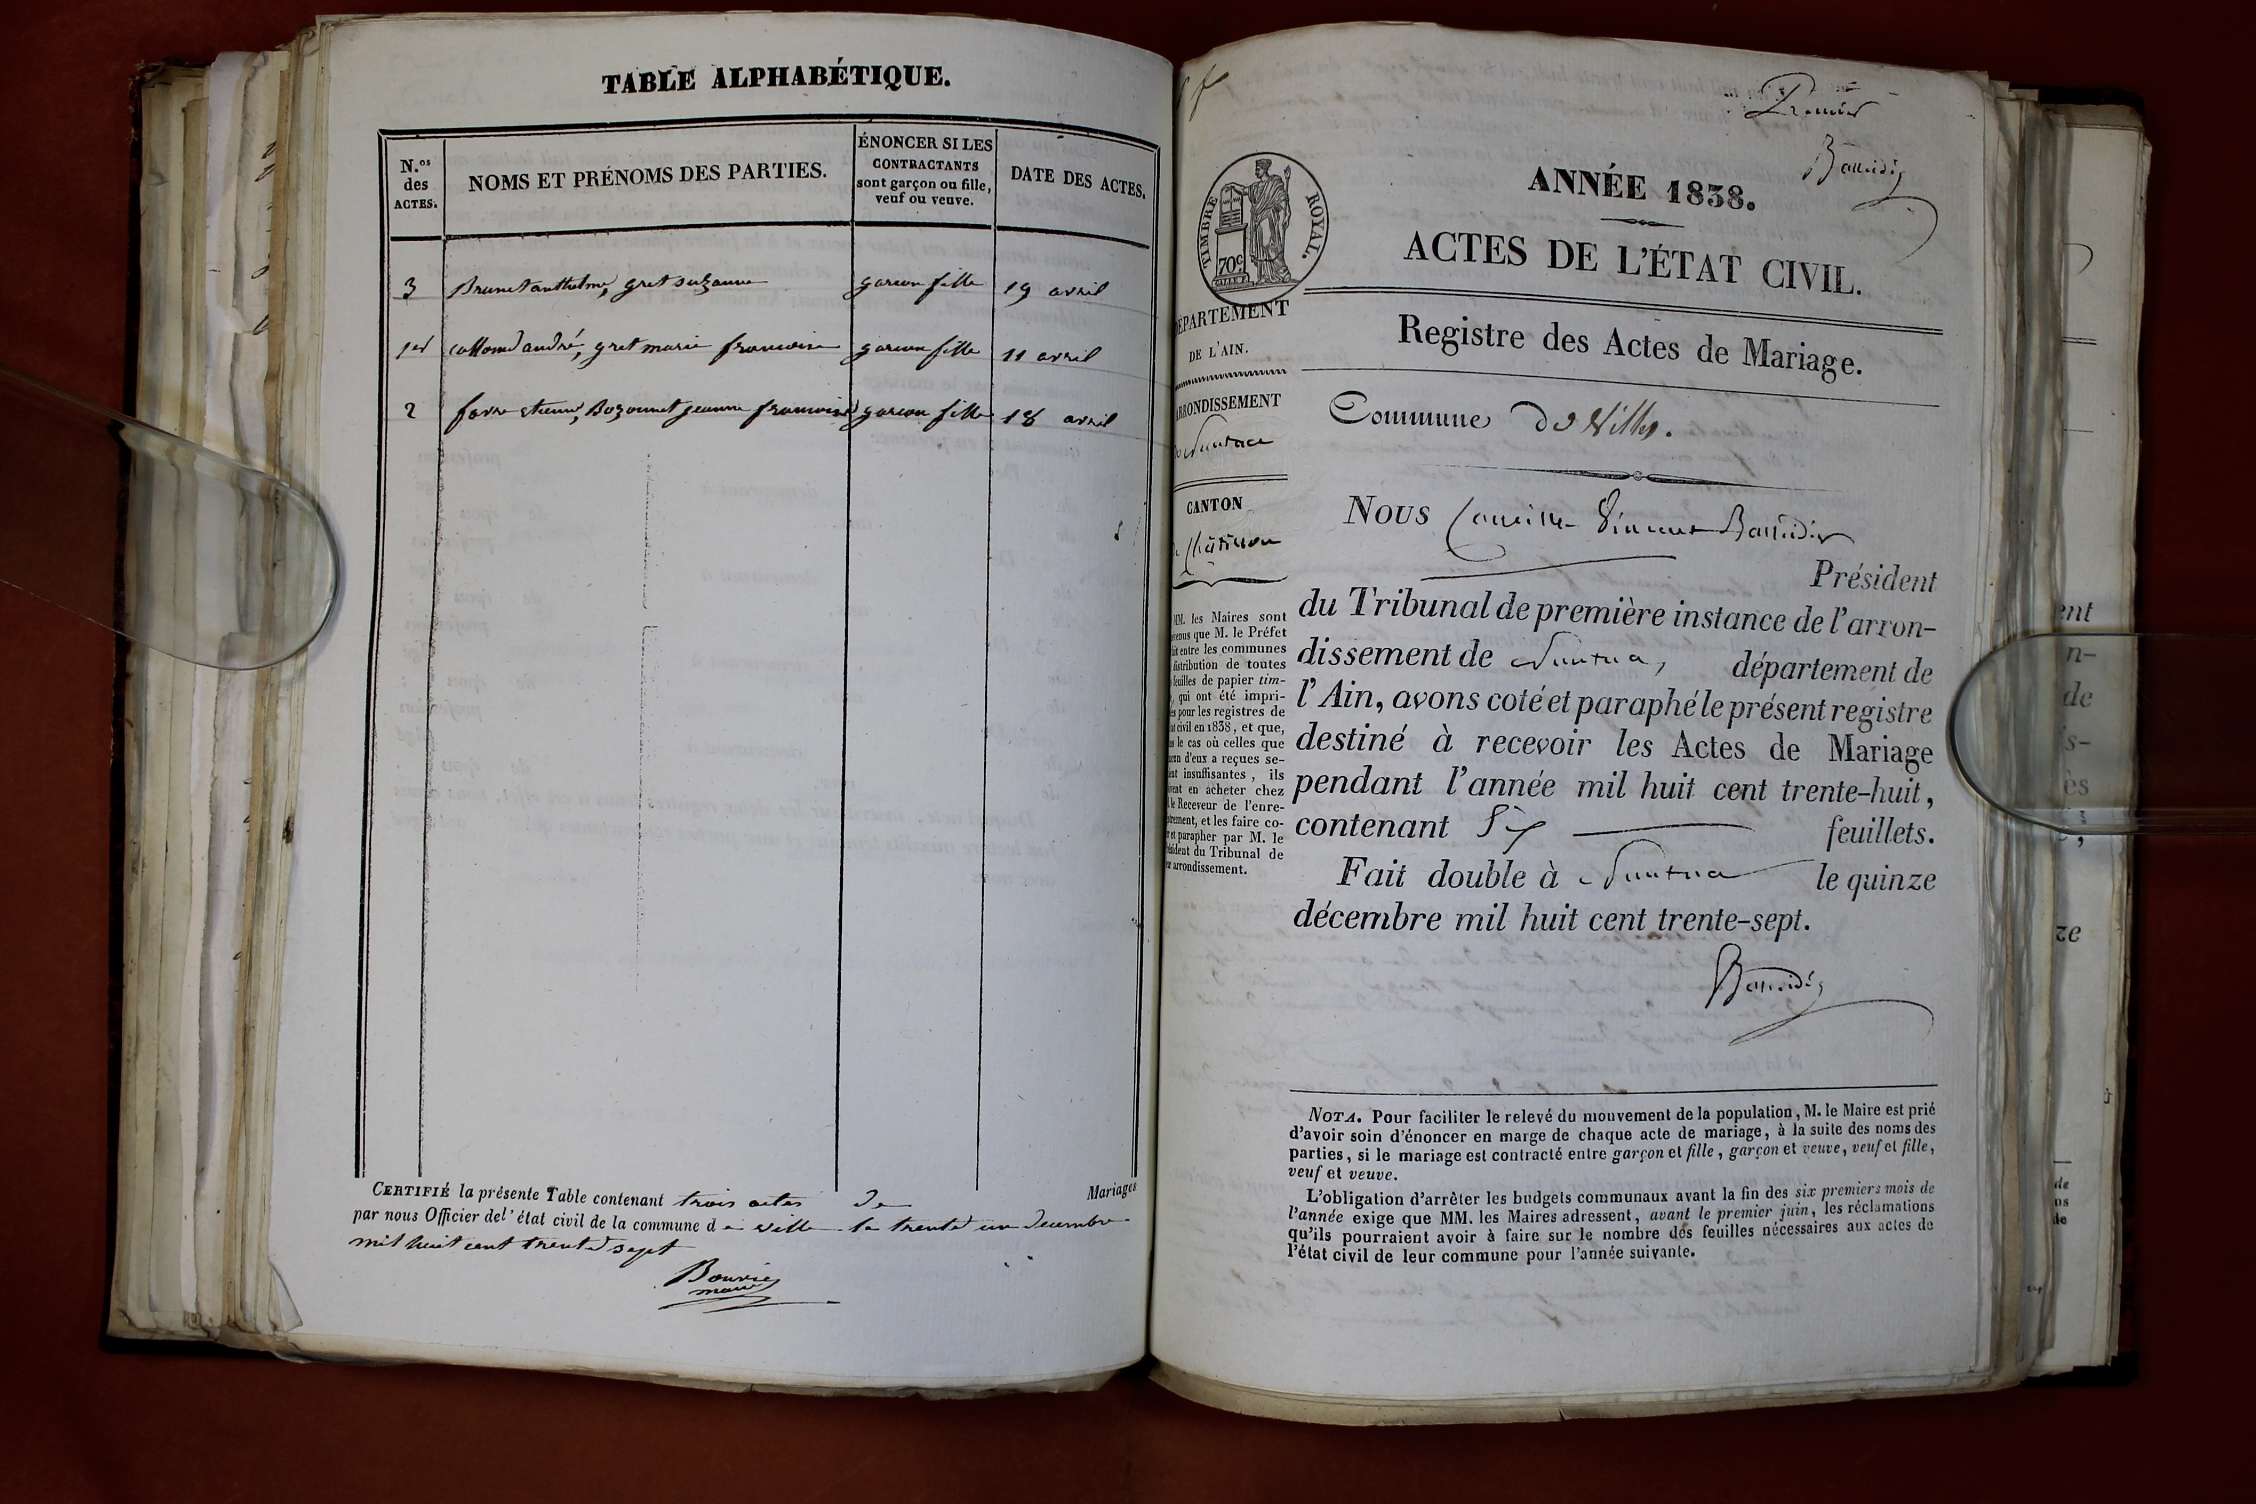 TABLE ALPHABÉTIQUE.
N.os
des
ACTES.
NOMS ET PRÉNOMS DES PARTIES.
ÉNONCER SI LES
CONTRACTANTS
sont garçon ou fille,
veuf ou veuve.
DATE DES ACTES.
3 Brunet anthelme, gret suzanne garcon fille 19 avril
1er collomb andré, gret marie francoise garcon fille 11 avril
2 favre etienne, Bozonnet jeanne francoise garcon fille 18 avril
CERTIFIÉ la présente Table contenant trois actes de Mariages
par nous Officier del' état civil de la commune d e ville le trente un decembre
mil huit cent trente sept
Bouvier
maire
Premier
Baudin
TIMBRE ROYAL.
70c
ANNÉE 1838.
ACTES DE L'ÉTAT CIVIL.
Registre des Actes de Mariage.
DÉPARTEMENT
DE L'AIN.
ARRONDISSEMENT
de Nantua
CANTON
de Châtillon
MM. les Maires sont
venus que M. le Préfet
fait entre les communes
distribution de toutes
feuilles de papier tim-
, qui ont été impri-
es pour les registres de
at civil en 1838, et que,
ns le cas où celles que
acun d'eux a reçues se-
ient insuffisantes, ils
ivent en acheter chez
le Receveur de l'enre-
istrement, et les faire co-
er et parapher par M. le
résident du Tribunal de
ur arrondissement.
Commune de Ville.
Nous Camille Vincent
Président
du Tribunal de première instance de l'arron-
dissement de Nantua, département de
l'Ain, avons coté et paraphé le présent registre
destiné à recevoir les Actes de Mariage
pendant l'année mil huit cent trente-huit,
contenant Six feuillets.
Fait double à Nantua le quinze
décembre mil huit cent trente-sept.
NOTA. Pour faciliter le relevé du mouvement de la population, M. le Maire est prié
d'avoir soin d'énoncer en marge de chaque acte de mariage, à la suite des noms des
parties, si le mariage est contracté entre garçon et fille, garçon et veuve, veuf et fille,
veuf et veuve.
L'obligation d'arrêter les budgets communaux avant la fin des six premiers mois de
l'année exige que MM. les Maires adressent, avant le premier juin, les réclamations
qu'ils pourraient avoir à faire sur le nombre des feuilles nécessaires aux actes de
l'état civil de leur commune pour l'année suivante.